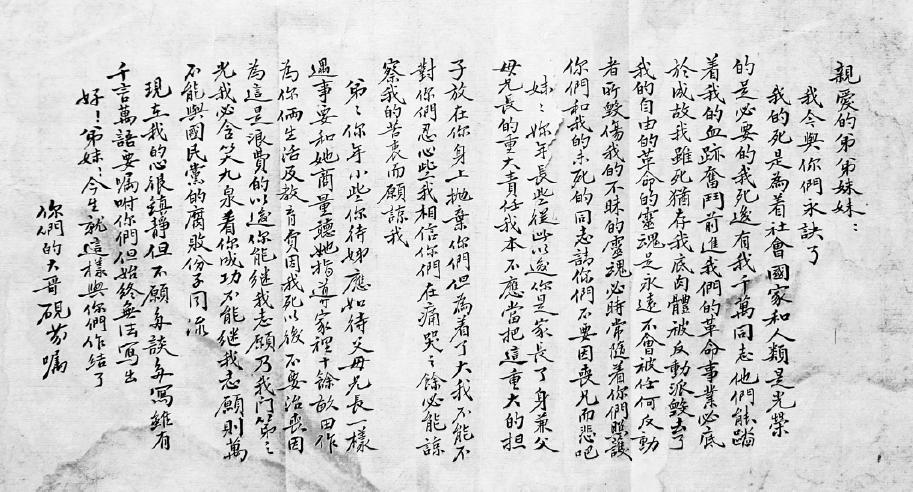 親愛的弟弟妹妹：
我今與你們永訣了
我的死是為着社會國家和人類是光榮
的是必要的我死後有我千萬同志他們能踏
着我的血跡奮鬥前進我們的革命事業必底
於成故我雖死猶存我底肉體被反動派毀去了
我的自由的革命的靈魂是永遠不會被任何反動
者所毀傷我的不昧的靈魂必時常隨着你們照護
你們和我的未死的同志請你們不要因喪兄而悲吧
妹〻你年長些從此以後你是家長了身兼父
母兄長的重大責任我本不應當把這重大的担
子放在你身上拋棄你們但為着了大我不能不
對你們忍心些我相信你們在痛哭之餘必能諒
察我的苦衷而願諒我
弟〻你年小些你待姊應如待父母兄長一樣
遇事要和她商量聽她指導家裡十餘畝田作
為你倆生活及教育費因我死以後不要治喪因
為這是浪費的以後你能繼我志願乃我門第之
光我必含笑九泉看你成功不能繼我志願則萬
不能與國民黨的腐敗份子同流
現在我的心很鎮靜但不願多談多寫雖有
千言萬語要囑咐你們但始終無法寫出
好！弟妹今生就這樣與你們作結了
你們的大哥硯芬囑